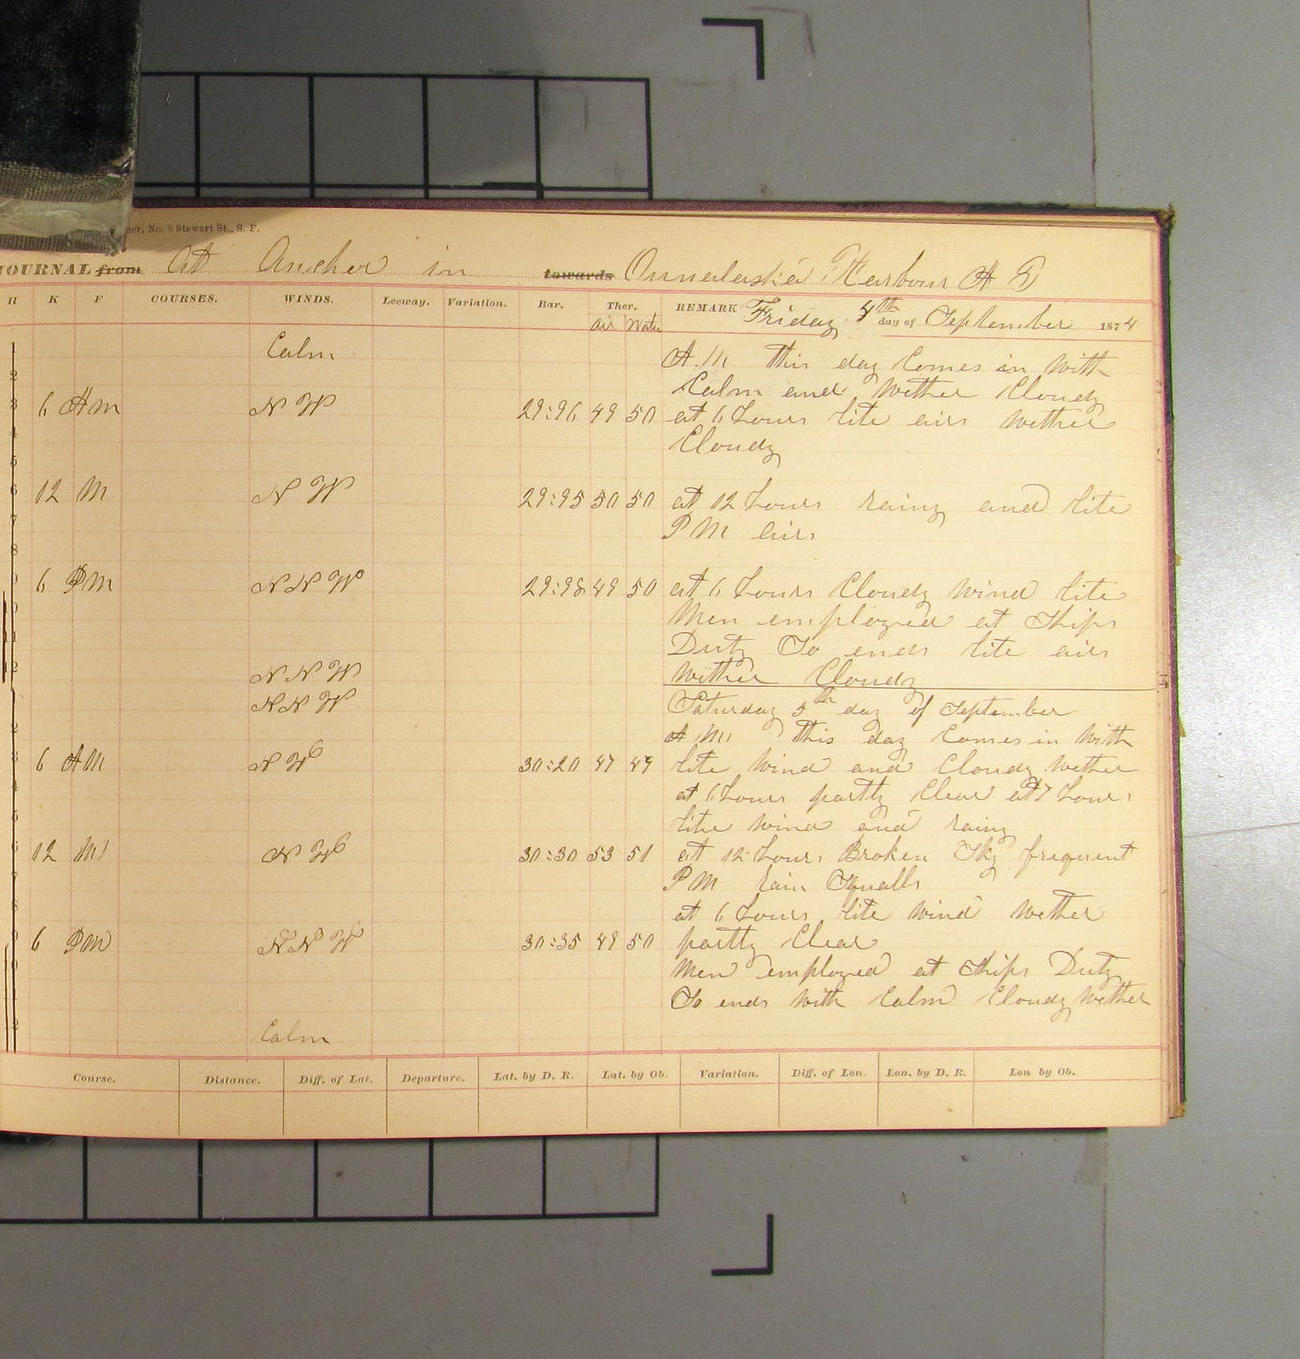 No. 8 Stewart St., S. F.
JOURNAL from At Ancher in towards Ounalaska Harbour A T
H K F COURSES. WINDS. Leeway. Variation. Bar. Ther. REMARK Friday 4th day of September 1874
Air Water
Calm A.M. this day Comes in With
Calm and Wether Cloudy
6 AM N W 29:96 49 50 at 6 hours lite airs Wether
Cloudy
12 M N W 29:95 50 50 at 12 hours rainy and lite
PM airs
6 PM N N W 29:98 49 50 at 6 hours Cloudy Wind lite
Men employed at Ships
Duty So ends lite airs
N N W Wither Cloudy
N N W Saturday 5th day of September
A M this day Comes in With
6 AM N W 30:20 47 49 lite Wind and Cloudy Wether
at 6 hours partly Clear at 7 hours
lite Wind and rainy
12 M N W 30:30 53 51 at 12 hours Broken Sky frequent
PM rain Squalls
at 6 hours lite Wind Wether
6 PM N N W 30:35 49 50 partly Clear
Men employed at Ships Duty
So ends With Calm Cloudy Wether
Calm
Course. Distance. Diff. of Lat. Departure. Lat. by D. R. Lat. by Ob. Variation. Diff. of Lon. Lon. by D. R. Lon by Ob.